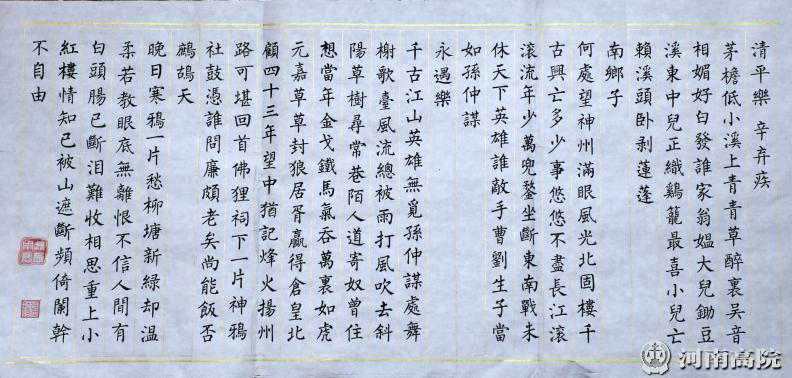 清平樂 辛弃疾
茅檐低小溪上青青草醉裏吴音
相媚好白發誰家翁媼大兒鋤豆
溪東中兒正織鷄籠最喜小兒亡
賴溪頭卧剥蓮蓬
南鄉子
何處望神州滿眼風光北固樓千
古興亡多少事悠悠不盡長江滚
滚流年少萬兜鍪坐斷東南戰未
休天下英雄誰敵手曹劉生子當
如孫仲謀
永遇樂
千古江山英雄無覓孫仲謀處舞
榭歌臺風流總被雨打風吹去斜
陽草樹尋常巷陌人道寄奴曾住
想當年金戈鐵馬氣吞萬裏如虎
元嘉草草封狼居胥贏得倉皇北
顧四十三年望中猶記烽火揚州
路可堪回首佛狸祠下一片神鴉
社鼓憑誰問廉頗老矣尚能飯否
鷓鴣天
晚日寒鴉一片愁柳塘新緑却温
柔若教眼底無離恨不信人間有
白頭腸已斷泪難收相思重上小
紅樓情知已被山遮斷頻倚闌幹
不自由
河南高院